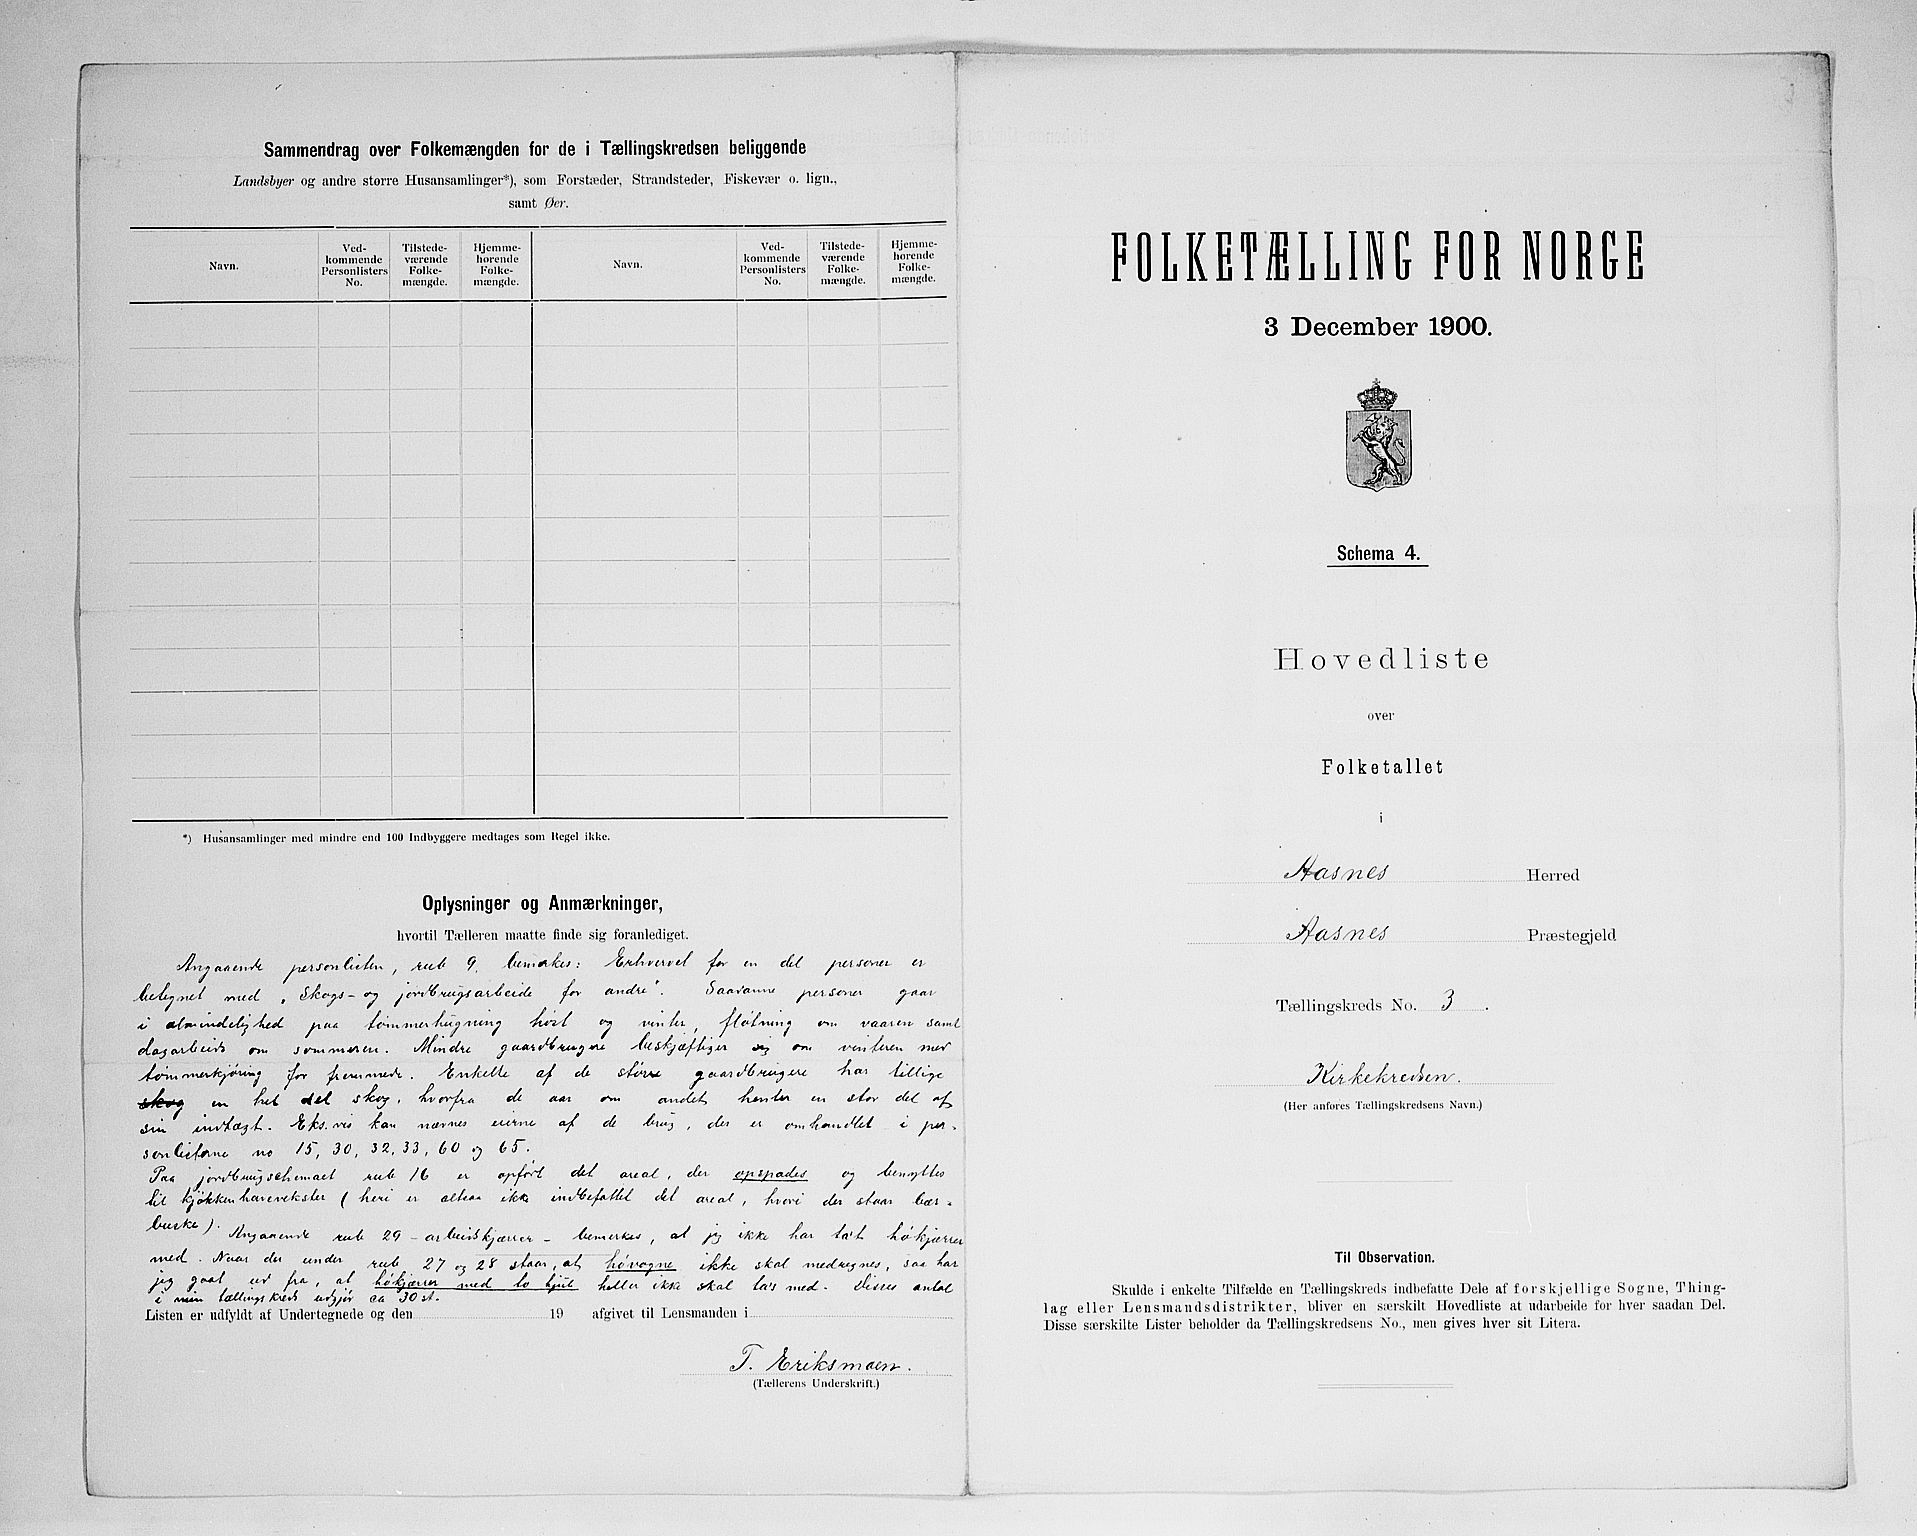 Sammendrag over Folkemængden for de i Tællingskredsen beliggende
Landsbyer og andre større Husansamlinger*), som Forstæder, Strandsteder, Fiskevær o. lign.,
samt Øer.
Navn.
Ved-
kommende
Personlisters
No.
Tilstede-
værende
Folke-
mængde.
Hjemme-
hørende
Folke-
mængde.
Navn.
Ved-
kommende
Personlisters
No.
Tilstede-
værende
Folke-
mængde.
Hjemme-
hørende
Folke-
mængde.
*) Husansamlinger med mindre end 100 Indbyggere medtages som Regel ikke.
Oplysninger og Anmærkninger,
hvortil Tælleren maatte finde sig foranlediget.
Angaaende personlisten, rub 9, bemerkes: Erhvervet for en del personer er
betegnet med „Skogs- og jordbrugsarbeide for andre". Saadanne personer gaar
i almindelighed paa tømmerhugning høst og vinter, fløtning om vaaren samt
dagarbeide om sommeren. Mindre gaardbrugere beskjæftiger sig om vinteren med
tømmerkjøring for fremmede. Enkelte af de større gaardbrugere har tillige
skog en hel del skog, hvorfra de aar om andet henter en stor del af
sin indtægt. Eks.vis kan nævnes eierne af de brug, der er omhandlet i per-
sonlisterne no 15, 30, 32, 33, 60 og 65.
Paa jordbrugschemaet rub 16 er opført det areal, der opspades og benyttes
til kjøkkenhavevekster (heri er altsaa ikke indbefattet det areal, hvori der staar bær-
buske).
Angaaende rub 29 - arbeidskjærrer - bemerkes, at jeg ikke har tat høkjærrer
med. Naar der under rub 27 og 28 staar, at høvogne ikke skal medregnes, saa har
jeg gaat ud fra, at høkjærrer med to hjul heller ikke skal ta's med. Disses antal
i min tællingskreds udgjør ca 30 st.
Listen er udfyldt af Undertegnede og den 19 afgivet til Lensmanden i
T. Eriksmoen.
(Tællerens Underskrift.)
FOLKETÆLLING FOR NORGE
3 December 1900.
Schema 4.
Hovedliste
over
Folketallet
i
Aasnes Herred
Aasnes Præstegjeld
Tællingskreds No. 3.
Kirkekredsen.
(Her anføres Tællingskredsens Navn.)
Til Observation.
Skulde i enkelte Tilfælde en Tællingskreds indbefatte Dele af forskjellige Sogne, Thing-
lag eller Lensmandsdistrikter, bliver en særskilt Hovedliste at udarbeide for hver saadan Del.
Disse særskilte Lister beholder da Tællingskredsens No., men gives hver sit Litera.